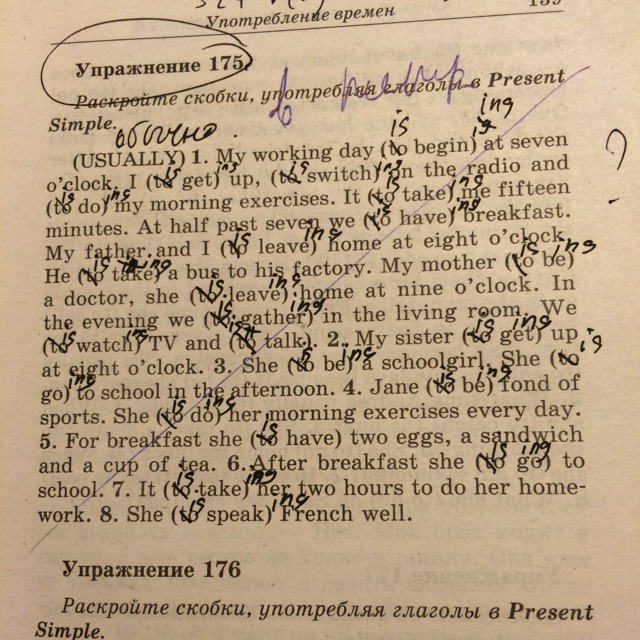 Употребление времен
Упражнение 175.
Раскройте скобки, употребляя глаголы в Present
Simple.
обычно.
(USUALLY) 1. My working day (to begin) at seven
o'clock. I (to get) up, (to switch) on the radio and
(to do) my morning exercises. It (to take) me fifteen
minutes. At half past seven we (to have) breakfast.
My father and I (to leave) home at eight o'clock.
He (to take) a bus to his factory. My mother (to be)
a doctor, she (to leave) home at nine o'clock. In
the evening we (to gather) in the living room. We
(to watch) TV and (to talk). 2. My sister (to get) up
at eight o'clock. 3. She (to be) a schoolgirl. She (to
go) to school in the afternoon. 4. Jane (to be) fond of
sports. She (to do) her morning exercises every day.
5. For breakfast she (to have) two eggs, a sandwich
and a cup of tea. 6. After breakfast she (to go) to
school. 7. It (to take) her two hours to do her home-
work. 8. She (to speak) French well.
Упражнение 176
Раскройте скобки, употребляя глаголы в Present
Simple.